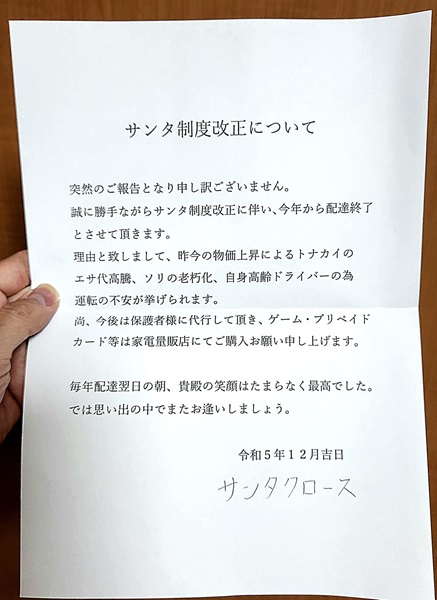 サンタ制度改正について
突然のご報告となり申し訳ございません。
誠に勝手ながらサンタ制度改正に伴い、今年から配達終了
とさせて頂きます。
理由と致しまして、昨今の物価上昇によるトナカイの
エサ代高騰、ソリの老朽化、自身高齢ドライバーの為
運転の不安が挙げられます。
尚、今後は保護者様に代行して頂き、ゲーム・プリペイド
カード等は家電量販店にてご購入お願い申し上げます。
毎年配達翌日の朝、貴殿の笑顔はたまらなく最高でした。
では思い出の中でまたお逢いしましょう。
令和５年１２月吉日
サンタクロース